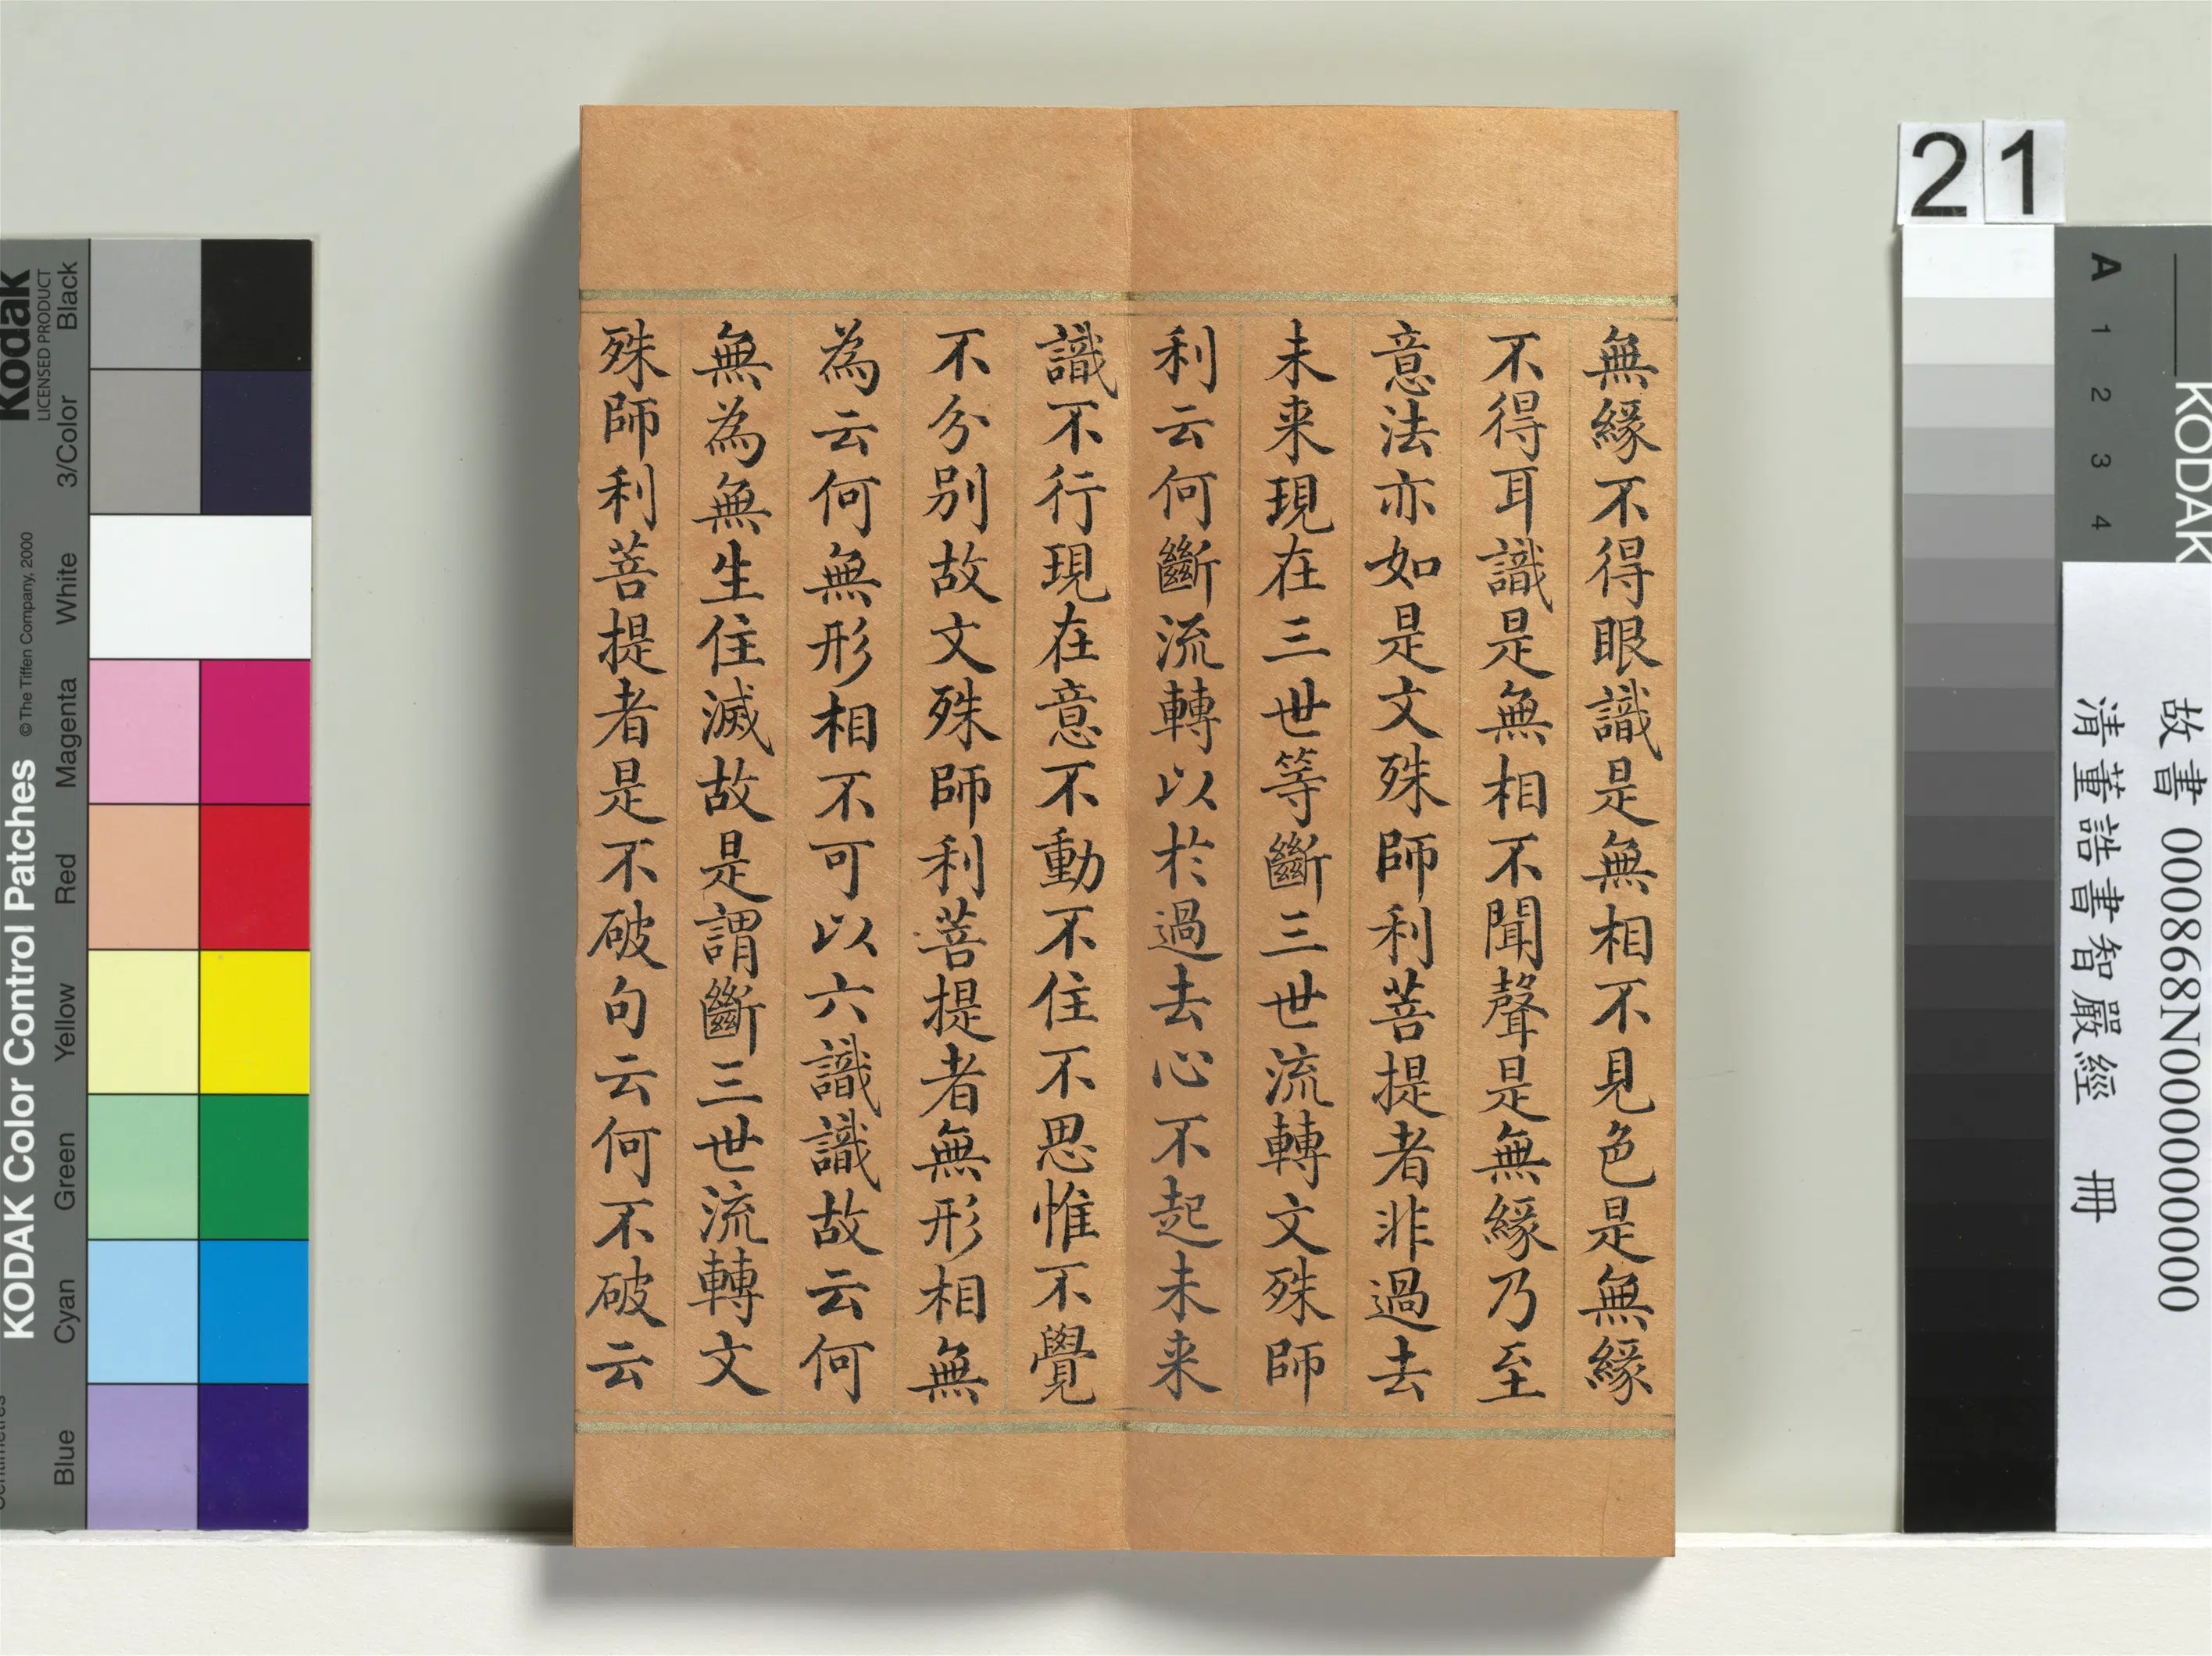 無緣不得眼識是無相不見色是無緣
不得耳識是無相不聞聲是無緣乃至
意法亦如是文殊師利菩提者非過去
未来現在三世等斷三世流轉文殊師
利云何斷流轉以於過去心不起未来
識不行現在意不動不住不思惟不覺
不分別故文殊師利菩提者無形相無
為云何無形相不可以六識識故云何
無為無生住滅故是謂斷三世流轉文
殊師利菩提者是不破句云何不破云
21
KODAK
A 1 2 3 4
故書 000868N000000000
清董誥書智嚴經 冊
Kodak
LICENSED PRODUCT
KODAK Color Control Patches
© The Tiffen Company, 2000
Blue Cyan Green Yellow Red Magenta White 3/Color Black